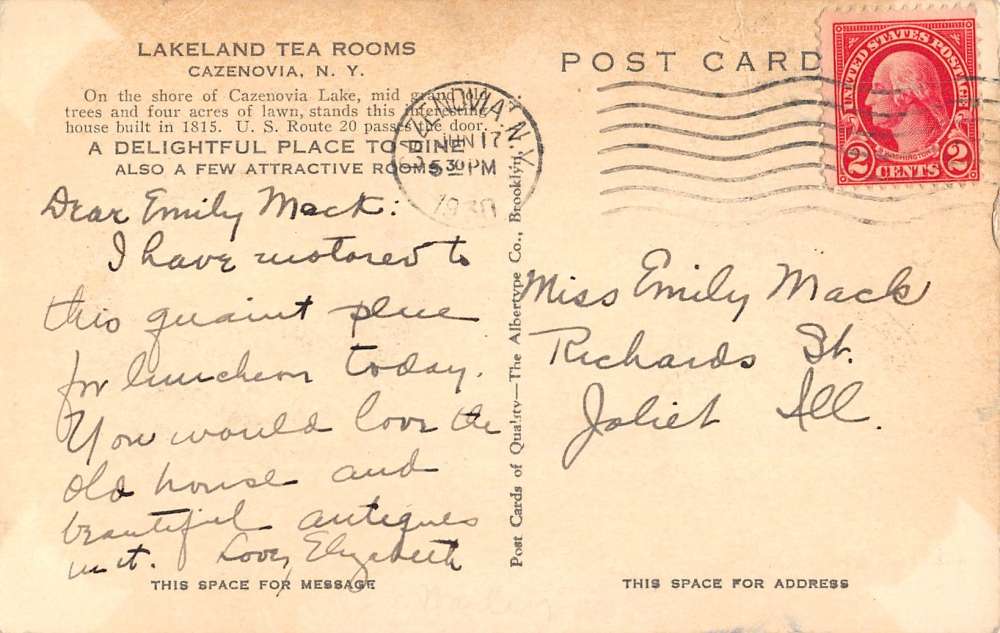 LAKELAND TEA ROOMS
CAZENOVIA, N. Y.
On the shore of Cazenovia Lake, mid grand old
trees and four acres of lawn, stands this interesting
house built in 1815. U. S. Route 20 passes the door.
A DELIGHTFUL PLACE TO DINE
ALSO A FEW ATTRACTIVE ROOMS
Dear Emily Mack:
I have motored to
this quaint place
for luncheon today.
You would love the
old house and
beautiful antiques
in it. Love, Elizabeth
THIS SPACE FOR MESSAGE
CAZENOVIA, N.Y.
JUN 17
5 30 PM
1930
Post Cards of Quality—The Albertype Co., Brooklyn, N. Y.
POST CARD
UNITED STATES POSTAGE
WASHINGTON
2 CENTS 2
Miss Emily Mack
Richards St.
Joliet Ill.
THIS SPACE FOR ADDRESS